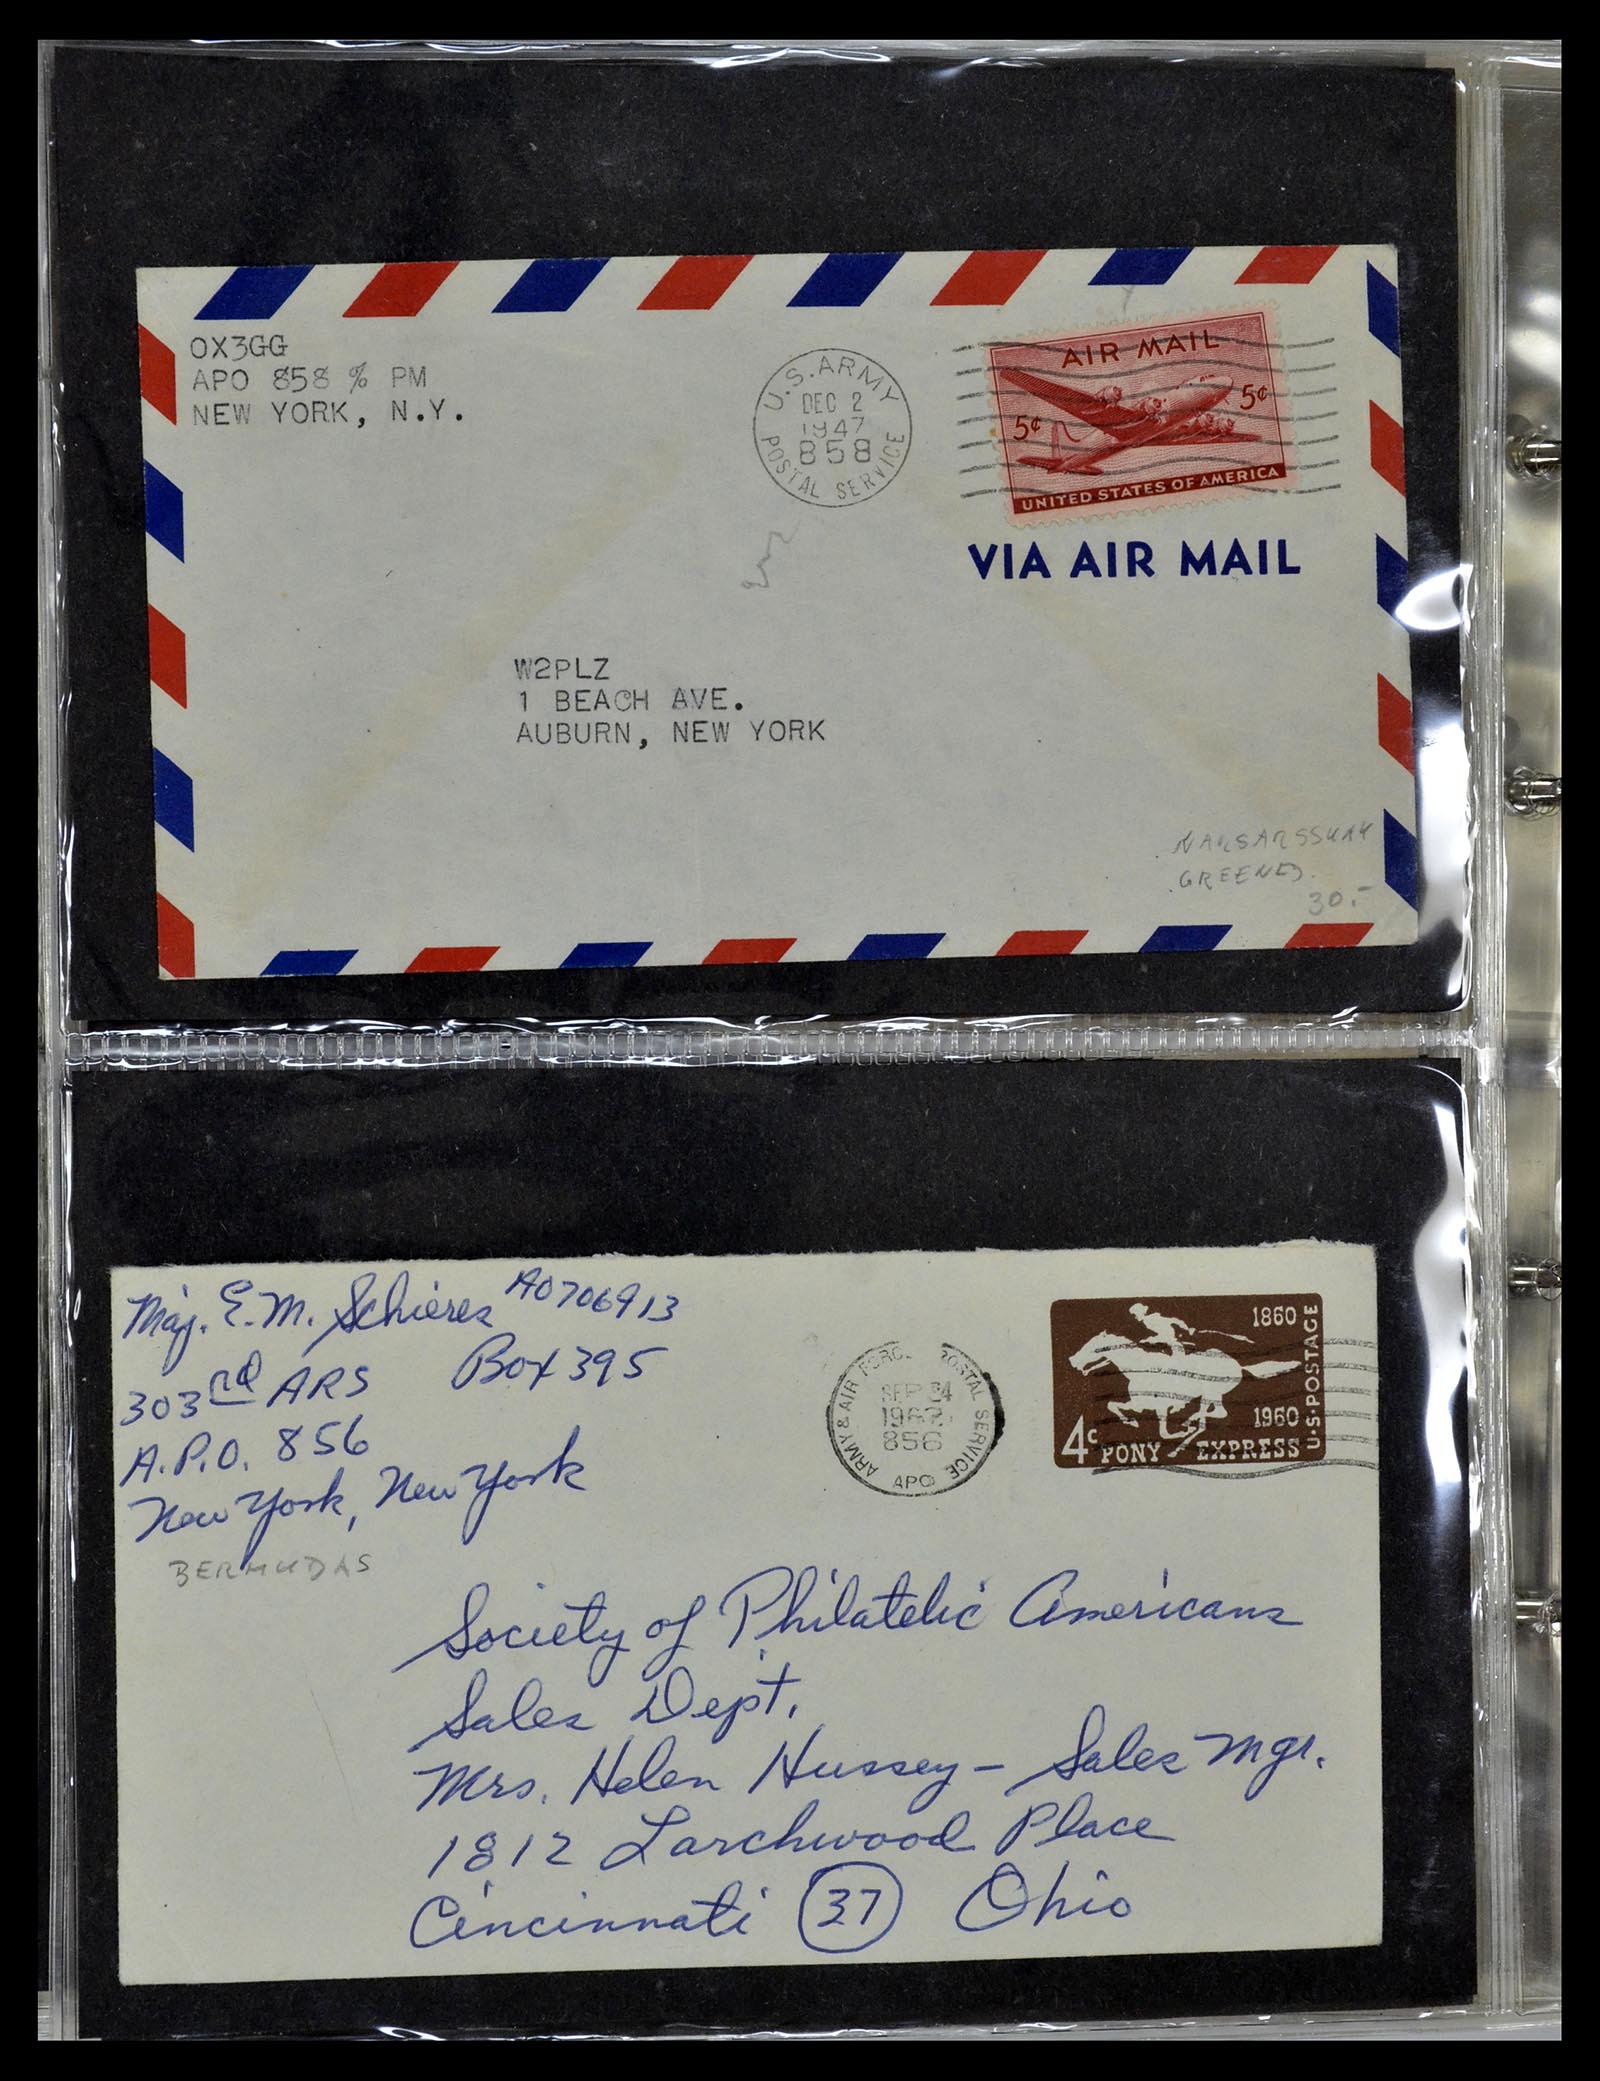 OX3GG
APO 858 % PM
NEW YORK, N.Y.
U.S. ARMY
DEC 2
1947
858
POSTAL SERVICE
AIR MAIL
5¢
5¢
UNITED STATES OF AMERICA
VIA AIR MAIL
W2PLZ
1 BEACH AVE.
AUBURN, NEW YORK
NARSARSSUAK
GREENLD.
30.-
Maj. E. M. Schieres AO706913
303rd ARS Box 395
A.P.O. 856
New York, New York
BERMUDAS
ARMY & AIR FORCE POSTAL SERVICE
SEP 24
856
APO
1860
1960
U.S. POSTAGE
4c PONY EXPRESS
Society of Philatelic Americans
Sales Dept.
Mrs. Helen Hussey - Sales Mgr.
1812 Larchwood Place
Cincinnati 37 Ohio